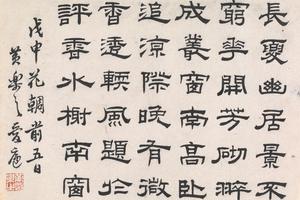 長夏幽居景不
窮華開芳砌翠
成叢窗南高臥
追涼際晚有微
香透輭風題於
評雲水榭南窗
戊申花朝前五日
黃樂之愛廬